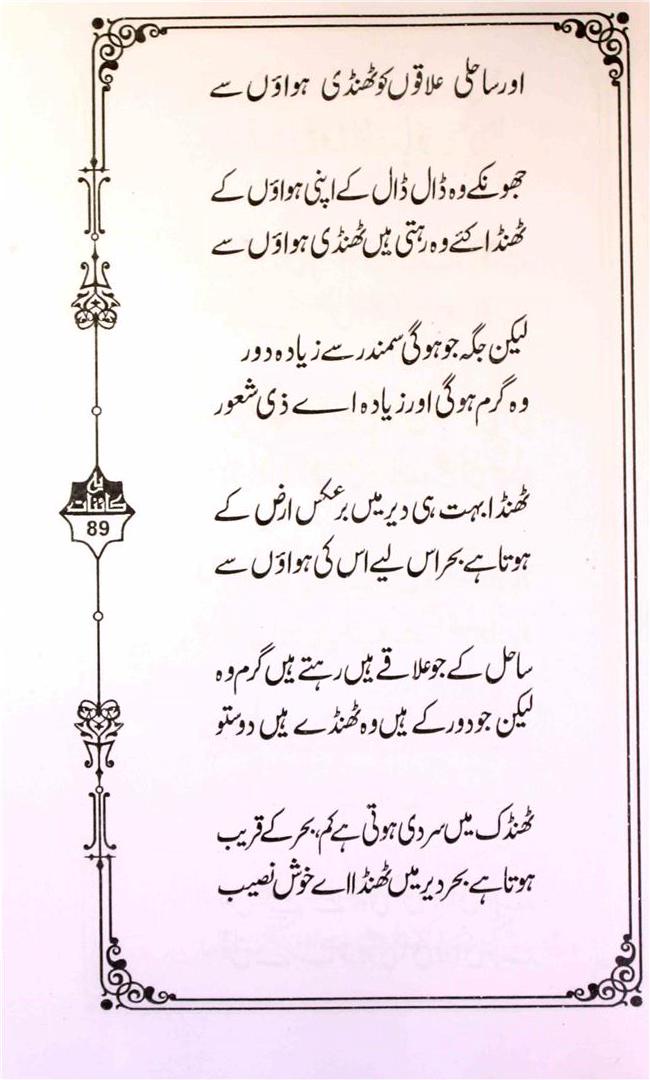 اور ساحلی علاقوں کو ٹھنڈی ہواؤں سے
جھونکے وہ ڈال ڈال کے اپنی ہواؤں کے
ٹھنڈا کئے وہ رہتی ہیں ٹھنڈی ہواؤں سے
لیکن جگہ جو ہوگی سمندر سے زیادہ دور
وہ گرم ہوگی اور زیادہ اے ذی شعور
ٹھنڈا بہت ہی دیر میں برعکس ارض کے
ہوتا ہے بحر اس لیے اس کی ہواؤں سے
ساحل کے جو علاقے ہیں رہتے ہیں گرم وہ
لیکن جو دور کے ہیں وہ ٹھنڈے ہیں دوستو
ٹھنڈک میں سردی ہوتی ہے کم، بحر کے قریب
ہوتا ہے بحر دیر میں ٹھنڈا اے خوش نصیب
کائنات
89